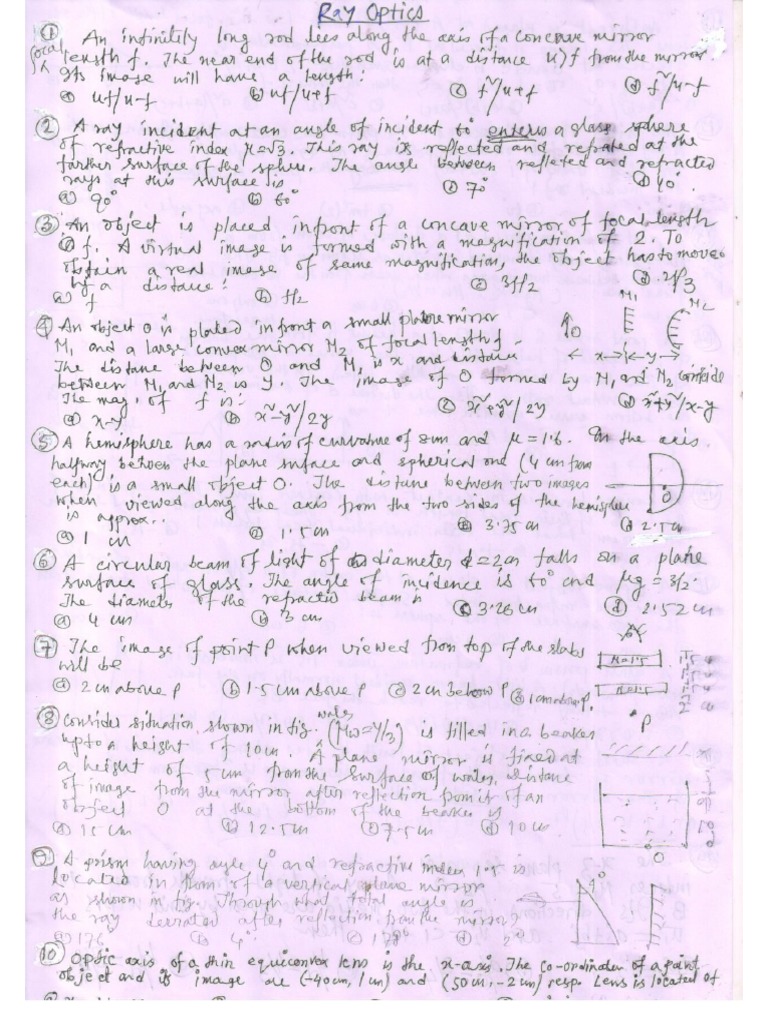 Ray Optics
① An infinitely long rod lies along the axis of a concave mirror
focal length f. The near end of the rod is at a distance u>f from the mirror.
Its image will have a length:
ⓐ uf/u-f ⓑ uf/u+f ⓒ f²/u+f ⓓ f²/u-f
② A ray incident at an angle of incident 60° enters a glass sphere
of refractive index μ=√3. This ray is reflected and refrated at the
farther surface of the sphere. The angle between refleted and refracted
rays at this surface is
ⓐ 90° ⓑ 60° ⓒ 70° ⓓ 40°
③ An object is placed infront of a concave mirror of focal length
f. A virtual image is formed with a magnification of 2. To
obtain a real image of same magnification, the object has to move
by a distance:
ⓐ f ⓑ f/2 ⓒ 3f/2 ⓓ 2f/3
④ An object O is plated infront a small plane mirror
M₁ and a large convex mirror M₂ of focal length f.
The distane between O and M₁ is x and distane
between M₁ and M₂ is y. The image of O formed by M₁ and M₂ coincide
The mag. of f is:
ⓐ x-y ⓑ x²-y²/2y ⓒ x²+y²/2y ⓓ x²+y²/x-y
M₁ M₂
O
← x →← y →
⑤ A hemisphere has a radius of curvature of 8cm and μ=1.6. On the axis
halfway between the plane surface and spherical one (4 cm from
each) is a small object O. The distane between two images
when viewed along the axis from the two sides of the hemisphere
is approx..
ⓐ 1 cm 1.5cm 3.75cm ⓓ 2.5cm
O
⑥ A circular beam of light of diameter d=2cm falls on a plane
surface of glass. The angle of incidence is 60° and μg = 3/2.
The diameter of the refracted beam is
ⓐ 4 cm ⓑ 3 cm ⓒ 3.26cm ⓓ 2.52cm
⑦ The image of point P when viewed from top of the slabs
will be
ⓐ 2cm above P ⓑ 1.5cm above P ⓒ 2cm below P ⓓ 1cm above P.
μ=1.5
μ=1.5
P
⑧ Consider situation, shown in fig. water (μw=4/3) is filled in a beaker
upto a height of 10cm. A plane mirror is fixed at
a height of 5cm from the surface of water, distane
of image from the mirror after reflection from it of an
object O at the bottom of the beaker is
ⓐ 15cm 12.5cm 7.5cm ⓓ 10cm
O
⑨ A prism having angle 4° and refractive index 1.5 is
located in front of a vertical plane mirror
as shown in fig. Through what total angle is
the ray deviated after reflection from the mirror?
ⓐ 176° ⓑ 4° ⓒ 178° ⓓ 2°
4°
⑩ Optic axis of a thin equiconvex lens is the x-axis. The co-ordinates of a point
object and its image are (-40cm, 1cm) and (50cm, -2cm) resp. Lens is located at